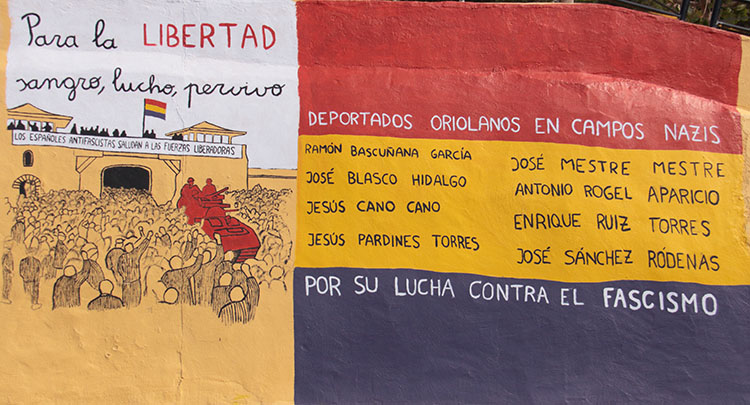 Para la LIBERTAD
sangro, lucho, pervivo
LOS ESPAÑOLES ANTIFASCISTAS SALUDAN A LAS FUERZAS LIBERADORAS
DEPORTADOS ORIOLANOS EN CAMPOS NAZIS
RAMÓN BASCUÑANA GARCÍA
JOSÉ BLASCO HIDALGO
JESÚS CANO CANO
JESÚS PARDINES TORRES
JOSÉ MESTRE MESTRE
ANTONIO ROGEL APARICIO
ENRIQUE RUIZ TORRES
JOSÉ SÁNCHEZ RÓDENAS
POR SU LUCHA CONTRA EL FASCISMO